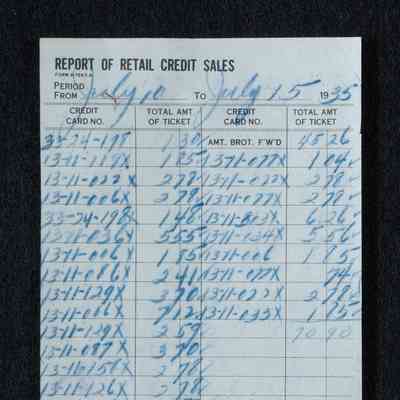 REPORT OF RETAIL CREDIT SALES
PERIOD
FROM July 10 TO July 15 1935
CREDIT CARD NO. TOTAL AMT OF TICKET CREDIT CARD NO. TOTAL AMT OF TICKET
33-74-198 1 30 AMT. BROT. F'W'D 48 26
13-11-119X 1 85 1371-077X 1 04
13-11-022X 2 78 1371-022X 2 78
13-11-006X 2 78 1371-077X 2 78
33-74-198X 1 48 6 26
13-11-036X 5 55 1371-034X 5 56
1371-006X 1 85 1371-006 1 85
13-11-086X 2 41 13-11-077X 74
13-11-129X 3 70 1371-022X 2 78
13-11-006X 7 12 13-11-035X 1 85
13-11-129X 2 59 70 90
13-11-087X 3 70
13-11-150X 2 78
13-11-126X 2 78